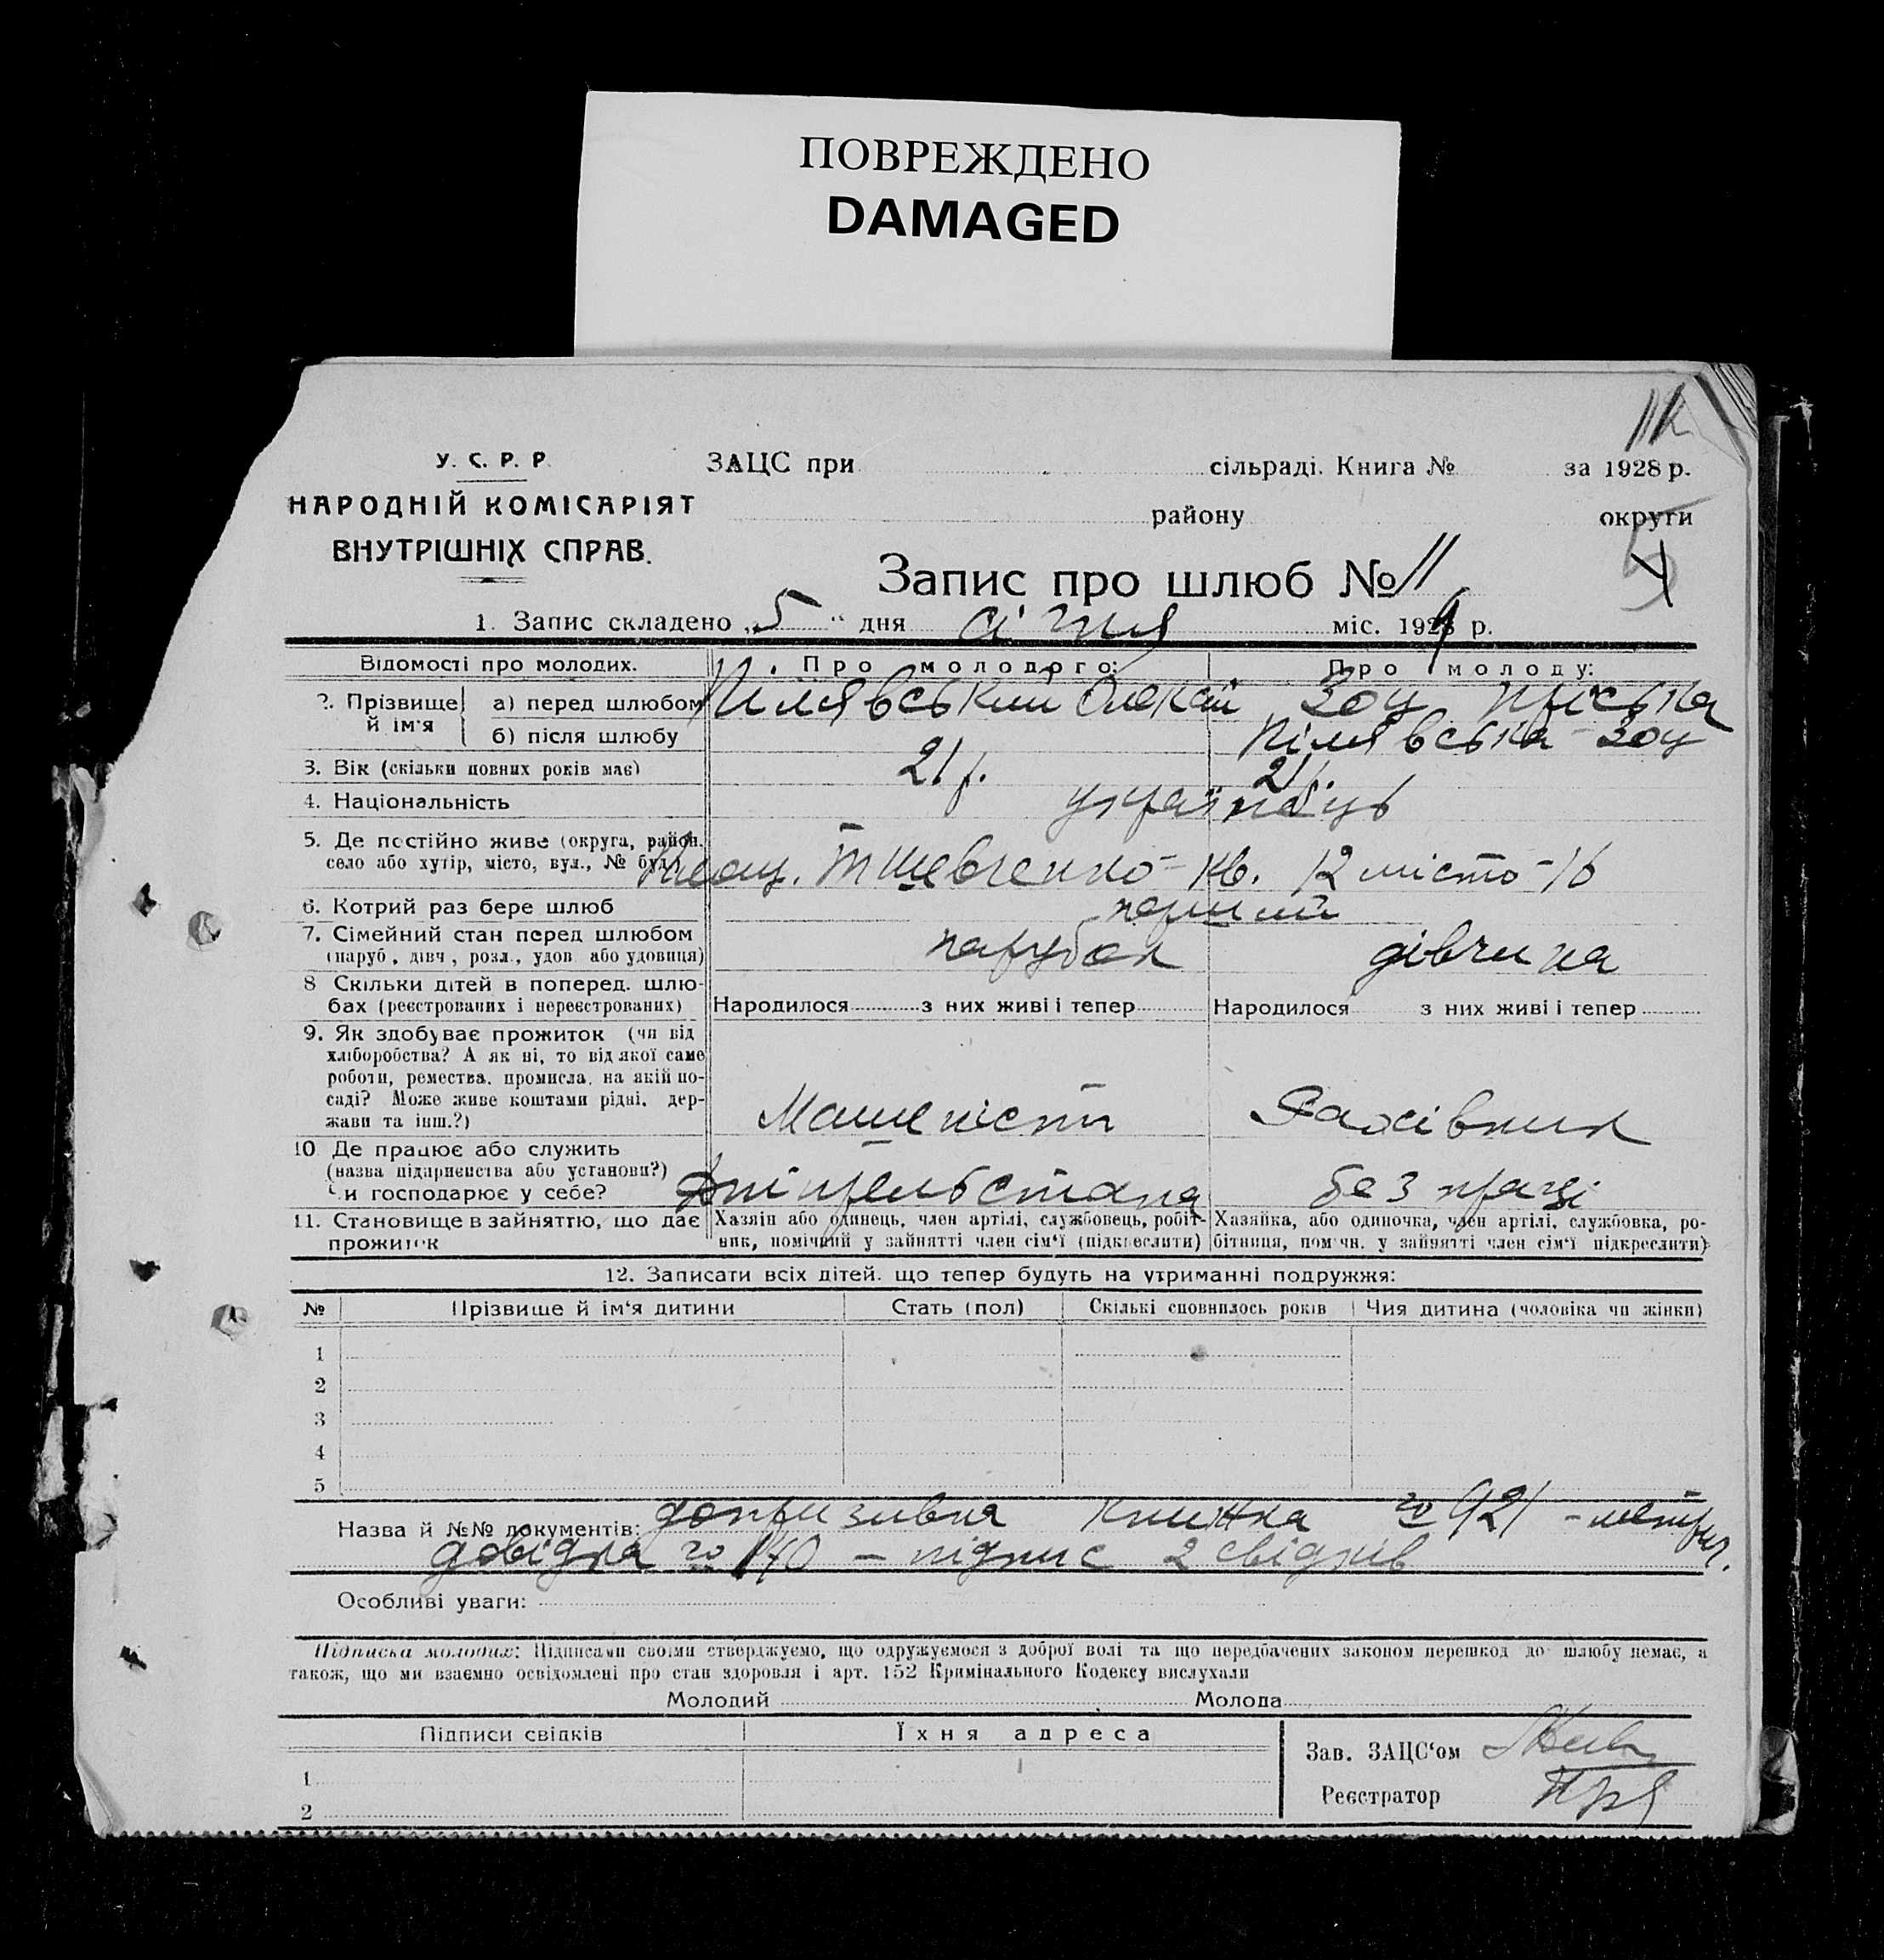 ПОВРЕЖДЕНО
DAMAGED
У. С. Р. Р.
НАРОДНІЙ КОМІСАРІЯТ
ВНУТРІШНІХ СПРАВ.
ЗАЦС при сільраді. Книга № за 1928 р.
району округи
Запис про шлюб № 11
1. Запис складено „5" дня січня міс. 1929 р.
Відомості про молодих. Про молодого: Про молоду:
2. Прізвище й ім'я а) перед шлюбом Пілявський Олексій Зоц Пріська
б) після шлюбу Пілявська-Зоц
3. Вік (скільки повних років має) 21 р. 21 р.
4. Національність українець
5. Де постійно живе (округа, район,
село або хутір, місто, вул., № буд.) площ. Т Шевченко - кв. 12 місто - 16
6. Котрий раз бере шлюб перший
7. Сімейний стан перед шлюбом
(паруб., дівч., розл., удов. або удовиця) парубок дівчина
8 Скільки дітей в поперед. шлю-
бах (реєстрованих і нереєстрованих) Народилося з них живі і тепер Народилося з них живі і тепер
9. Як здобуває прожиток (чи від
хліборобства? А як ні, то від якої саме
роботи, ремества, промисла, на якій по-
саді? Може живе коштами рідні, дер-
жави та інш.?) Машиніст
10 Де працює або служить
(назва підприємства або установи?)
Чи господарює у себе? без праці
11. Становище в зайняттю, що дає
прожиток
Хазяїн або одинець, член артілі, службовець, робіт-
ник, помічний у зайнятті член сім'ї (підкреслити)
Хазяйка, або одиночка, член артілі, службовка, ро-
бітниця, помічн. у зайнятті член сім'ї підкреслити)
12. Записати всіх дітей, що тепер будуть на утриманні подружжя:
№ Прізвище й ім'я дитини Стать (пол) Скількі сповнилось років Чия дитина (чоловіка чи жінки)
1
2
3
4
5
Назва й №№ документів: допризивна книжка № 921 - метрич.
довідка № 140 - підпис 2 свідків
Особливі уваги:
Підписка молодих: Підписами своїми стверджуємо, що одружуємося з доброї волі та що передбачених законом перешкод до шлюбу немає, а
також, що ми взаємно освідомлені про стан здоровля і арт. 152 Кримінального Кодексу вислухали
Молодий Молода
Підписи свідків Їхня адреса
1
2
Зав. ЗАЦС'ом
Реєстратор